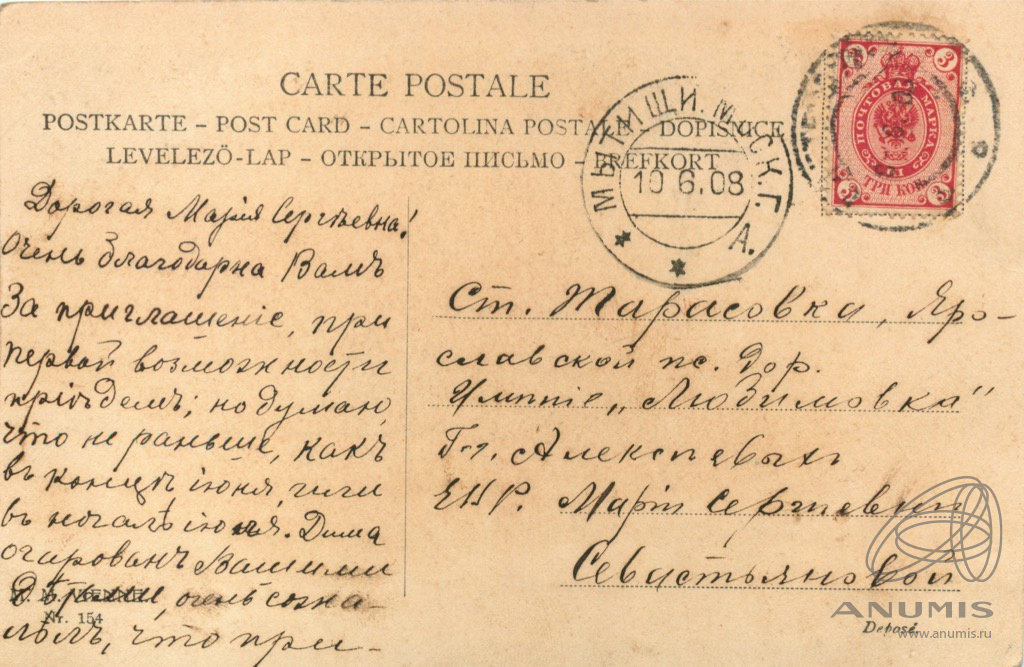 CARTE POSTALE
POSTKARTE – POST CARD – CARTOLINA POSTALE – DOPISNICE
LEVELEZŐ-LAP – ОТКРЫТОЕ ПИСЬМО – BREFKORT
ПОЧТОВАЯ МАРКА
ТРИ КОП.
3 3 3 3
МЫТИЩИ. МОСК. Г.
10 6.08
А.
Дорогая Марія Сергѣевна!
Очень благодарна Вамъ
За приглашеніе, при
первой возможности
пріѣдемъ; но думаю,
что не раньше, какъ
въ концѣ іюня или
въ началѣ іюля. Дима
очарованъ Вашими
Дѣтьми, очень сожа-
лѣлъ, что при-
Ст. Тарасовка, Яро-
славской ж. дор.
Имѣніе „Любимовка"
Гг. Алексѣевыхъ
ЕВР. Маріи Сергѣевны
Севастьяновой
Nr. 154
Deposé.
ANUMIS
www.anumis.ru